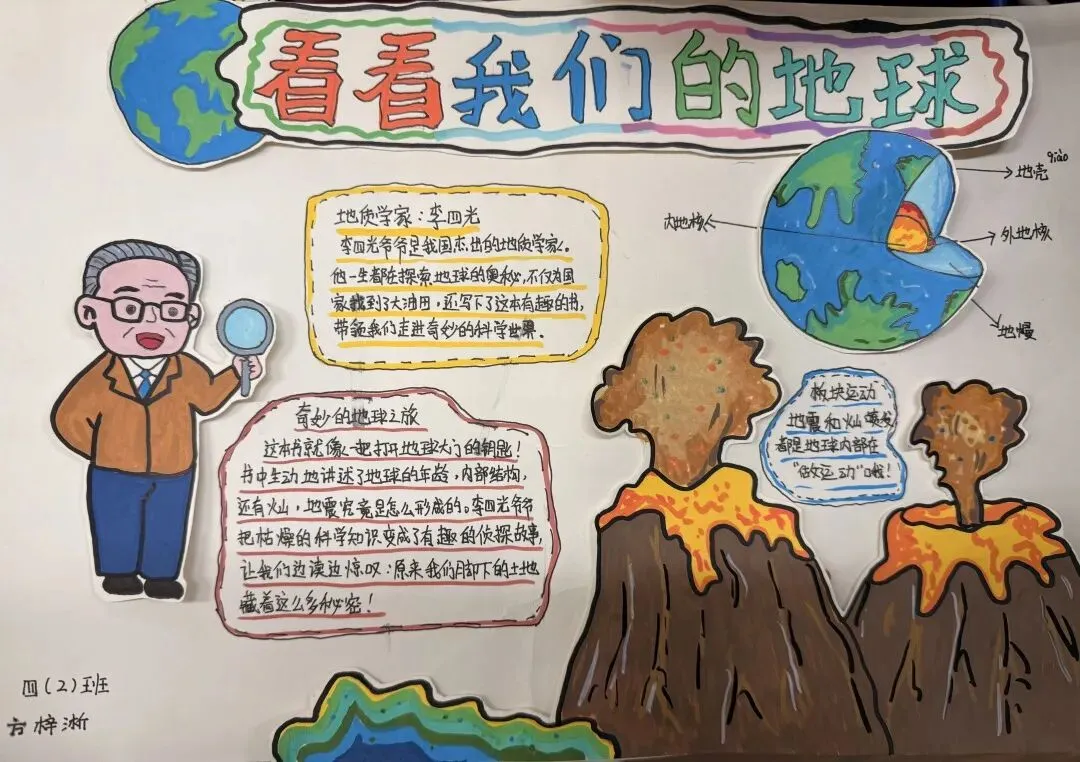 看看我们的地球
地质学家：李四光
李四光爷爷是我国杰出的地质学家。
他一生都在探索地球的奥秘，不仅为国
家找到了大油田，还写下了这本有趣的书，
带领我们走进奇妙的科学世界。
qiào
地壳
内地核
外地核
地幔
奇妙的地球之旅
这本书就像一把打开地球大门的钥匙！
书中生动地讲述了地球的年龄，内部结构，
还有火山，地震究竟是怎么形成的。李四光爷爷
把枯燥的科学知识变成了有趣的侦探故事，
让我们边读边惊叹：原来我们脚下的土地
藏着这么多秘密！
板块运动
地震和火山喷发
都是地球内部在
“做运动”哦！
四（2）班
方梓淅